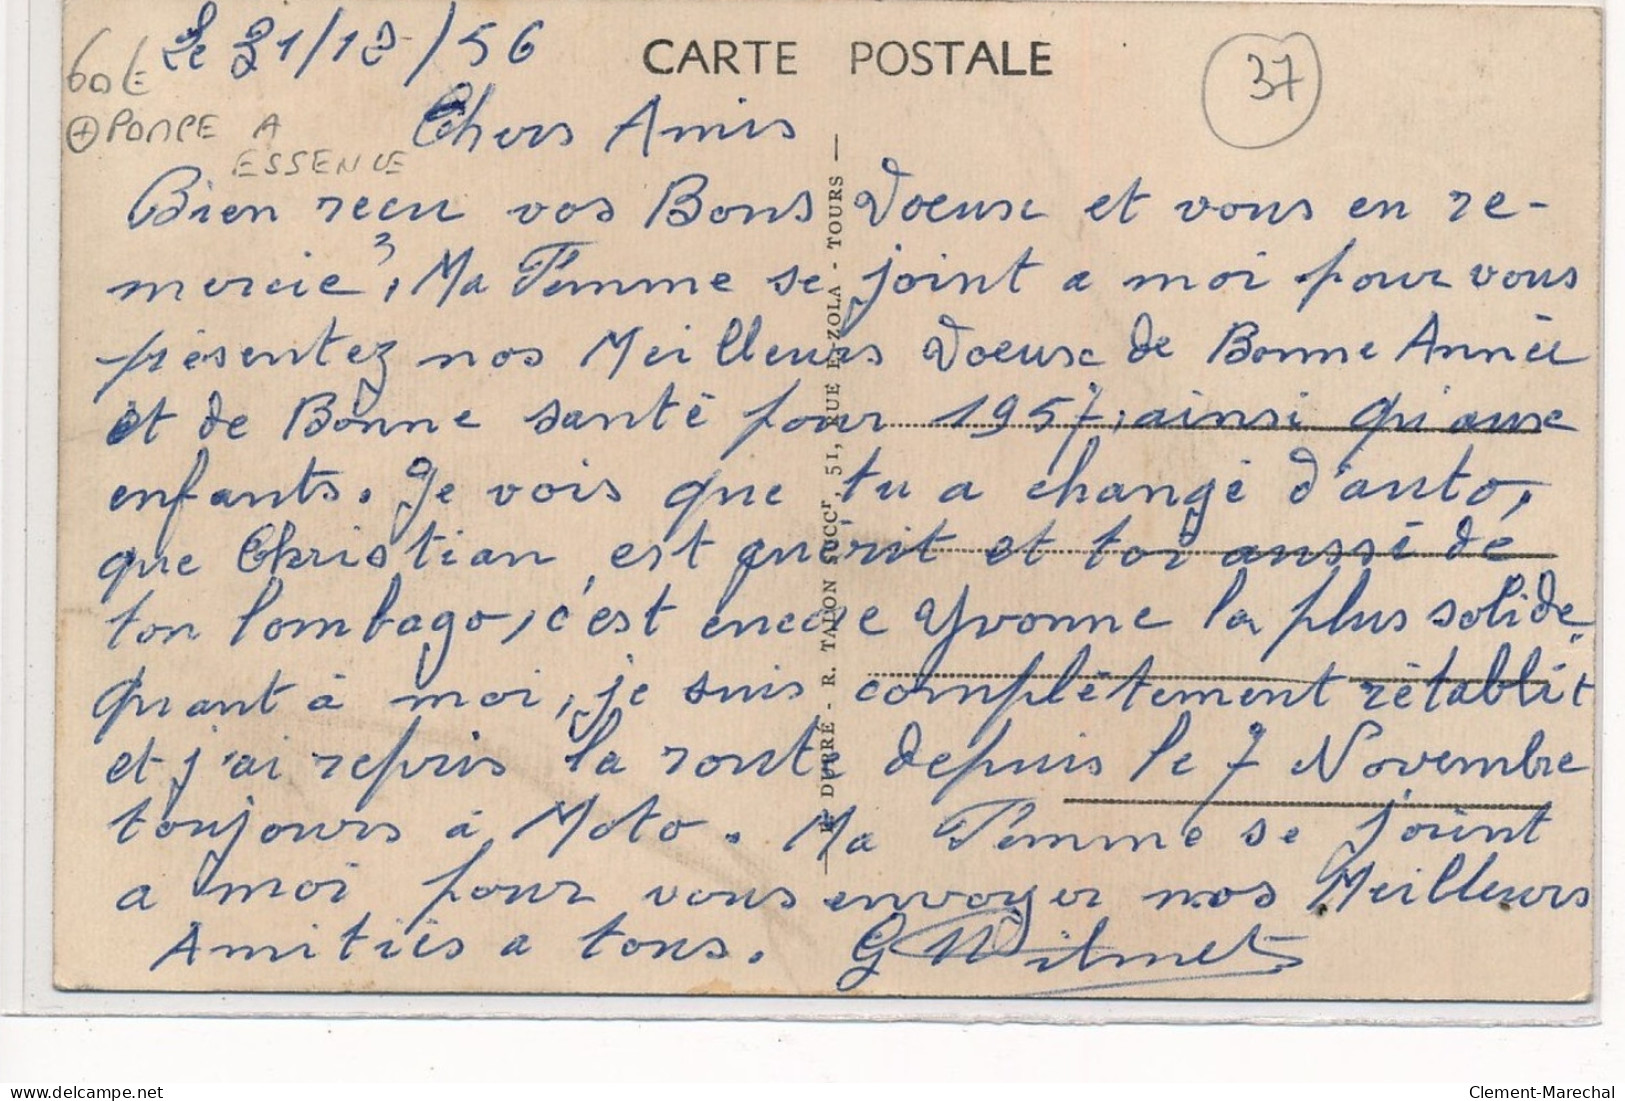 Le 21/12/56
CARTE POSTALE
37
60 E
+ POMPE A
ESSENCE
Chers Amis
Bien recu vos Bons Voeux et vous en re-
mercie, Ma Femme se joint a moi pour vous
présentez nos Meilleurs Voeux de Bonne Année
et de Bonne santé pour 1957, ainsi qu'aux
enfants. Je vois que tu a changé d'auto,
que Christian, est guérit et toi aussi de
ton lombago, c'est encore Yvonne la plus solide,
quant à moi, je suis complètement rétablit
et j'ai repris la route depuis le 7 Novembre
toujours à Moto. Ma Femme se joint
a moi pour vous envoyer nos Meilleurs
Amitiés a tous. G Wilmet
DURRÉ - R. TALON SUCCr, 51, RUE E. ZOLA - TOURS
delcampe.net
Clement-Marechal